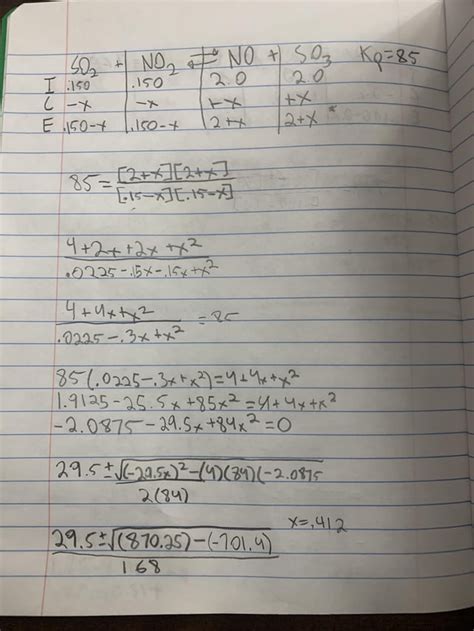 SO₂ + NO₂ ⇌ NO + SO₃ Kp=85
I .150 .150 2.0 2.0
C -x -x +x +x
E .150-x .150-x 2+x 2+x
85 = [2+x][2+x] / [.15-x][.15-x]
4+2x+2x+x² / .0225-.15x-.15x+x²
4+4x+x² / .0225-.3x+x² = 85
85(.0225-.3x+x²)=4+4x+x²
1.9125-25.5x+85x²=4+4x+x²
-2.0875-29.5x+84x²=0
29.5±√(-29.5x)²-(4)(84)(-2.0875 / 2(84)
x=.412
29.5±√(870.25)-(-701.4) / 168